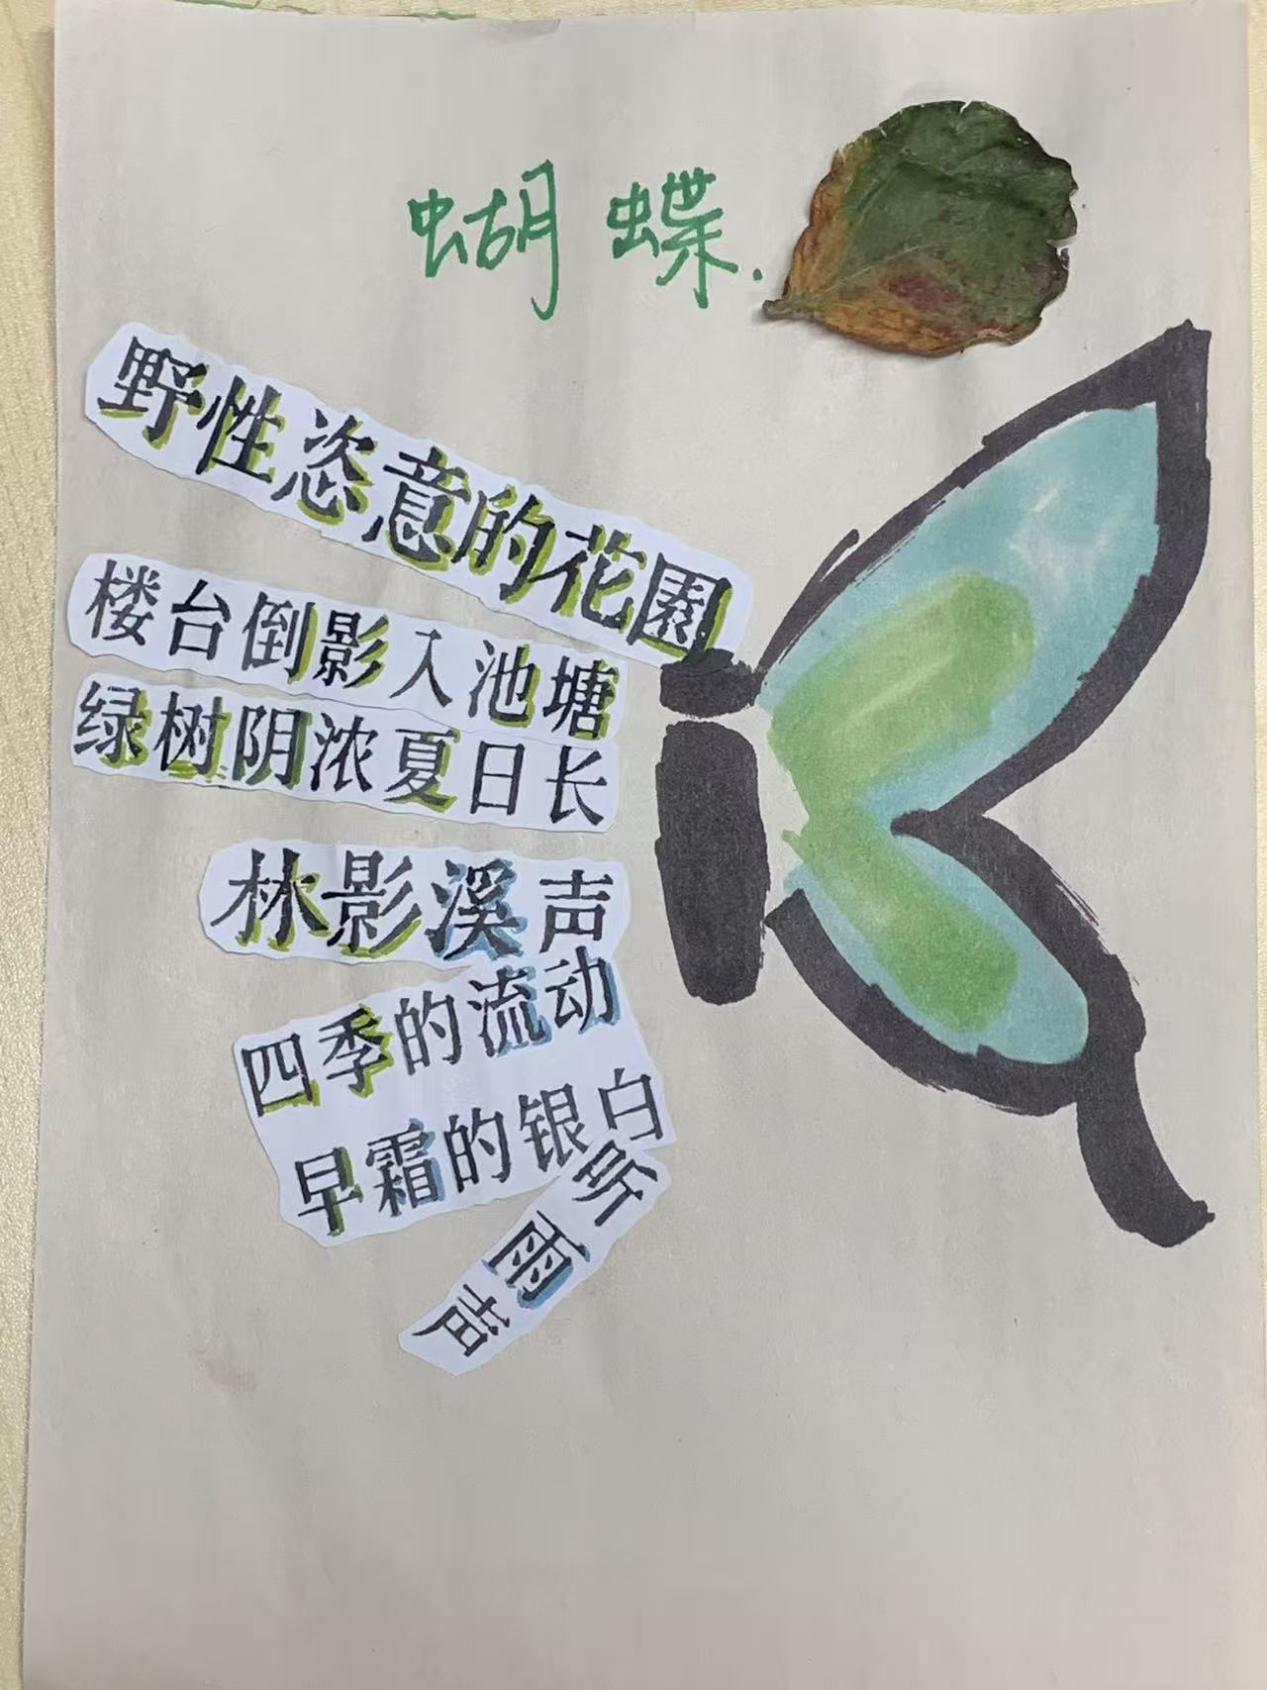 蝴蝶.
野性恣意的花園
楼台倒影入池塘
绿树阴浓夏日长
林影溪声
四季的流动
早霜的银白
听雨声